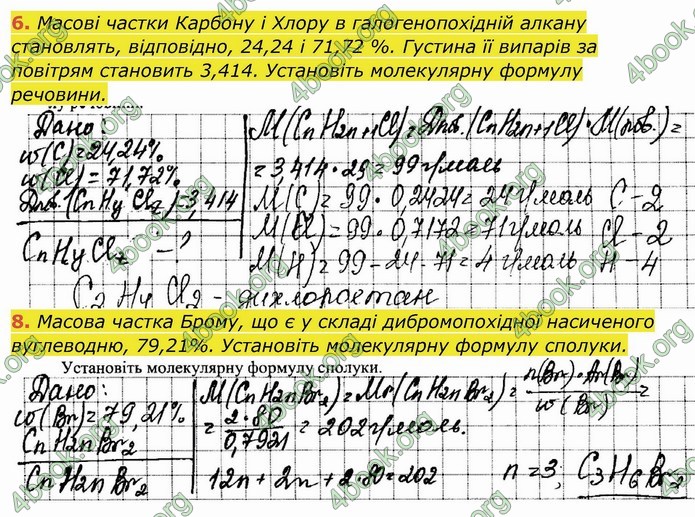 6. Масові частки Карбону і Хлору в галогенопохідній алкану
становлять, відповідно, 24,24 і 71,72 %. Густина її випарів за
повітрям становить 3,414. Установіть молекулярну формулу
речовини.
Дано:
w(C)=24,24%
w(Cl)=71,72%
Dпов.(CnHyClz)=3,414
CnHyClz -?
M(CnH2n+1Cl)=Dпов.(CnH2n+1Cl)·M(пов.)=
=3,414·29=99 г/моль
M(C)=99·0,2424=24 г/моль C-2
M(Cl)=99·0,7172=71 г/моль Cl-2
M(H)=99-24-71=4 г/моль H-4
C2H4Cl2 - дихлороетан
8. Масова частка Брому, що є у складі дибромопохідної насиченого
вуглеводню, 79,21%. Установіть молекулярну формулу сполуки.
Установіть молекулярну формулу сполуки.
Дано:
w(Br)=79,21%
CnH2nBr2
CnH2nBr2
M(CnH2nBr2)=Mr(CnH2nBr2)=n(Br)·Ar(Br)/w(Br)=
=2·80/0,7921=202 г/моль.
12n+2n+2·80=202 n=3; C3H6Br2
4book.org